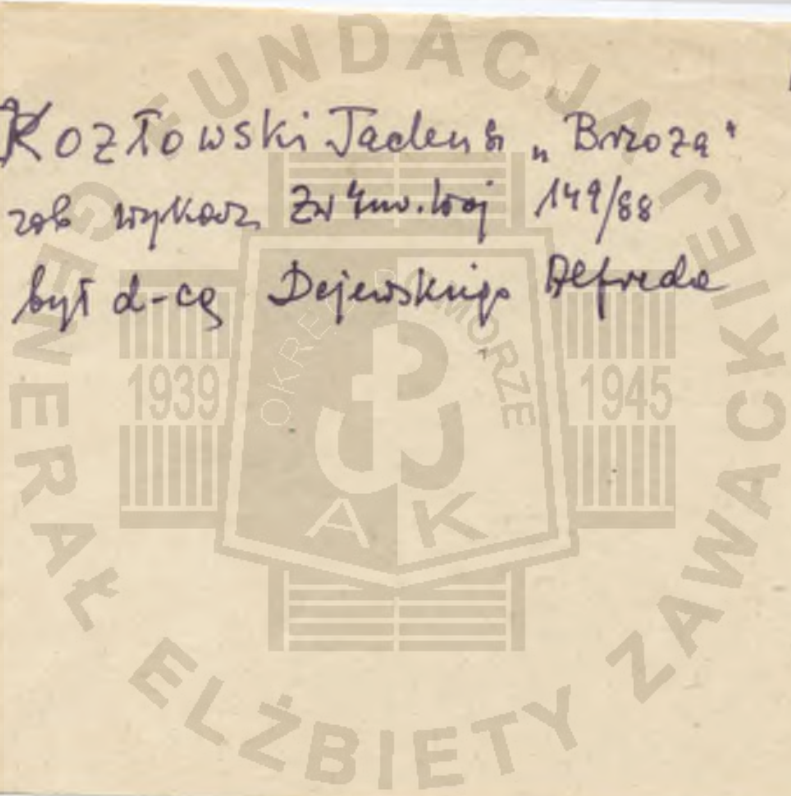 Kozłowski Tadeusz „Brzoza"
zob wykaz Zw Inw. Woj 149/88
był d-cą Dejewskiego Alfreda
FUNDACJA GENERAŁ ELŻBIETY ZAWACKIEJ
OKRĘG POMORZE
1939
1945
AK